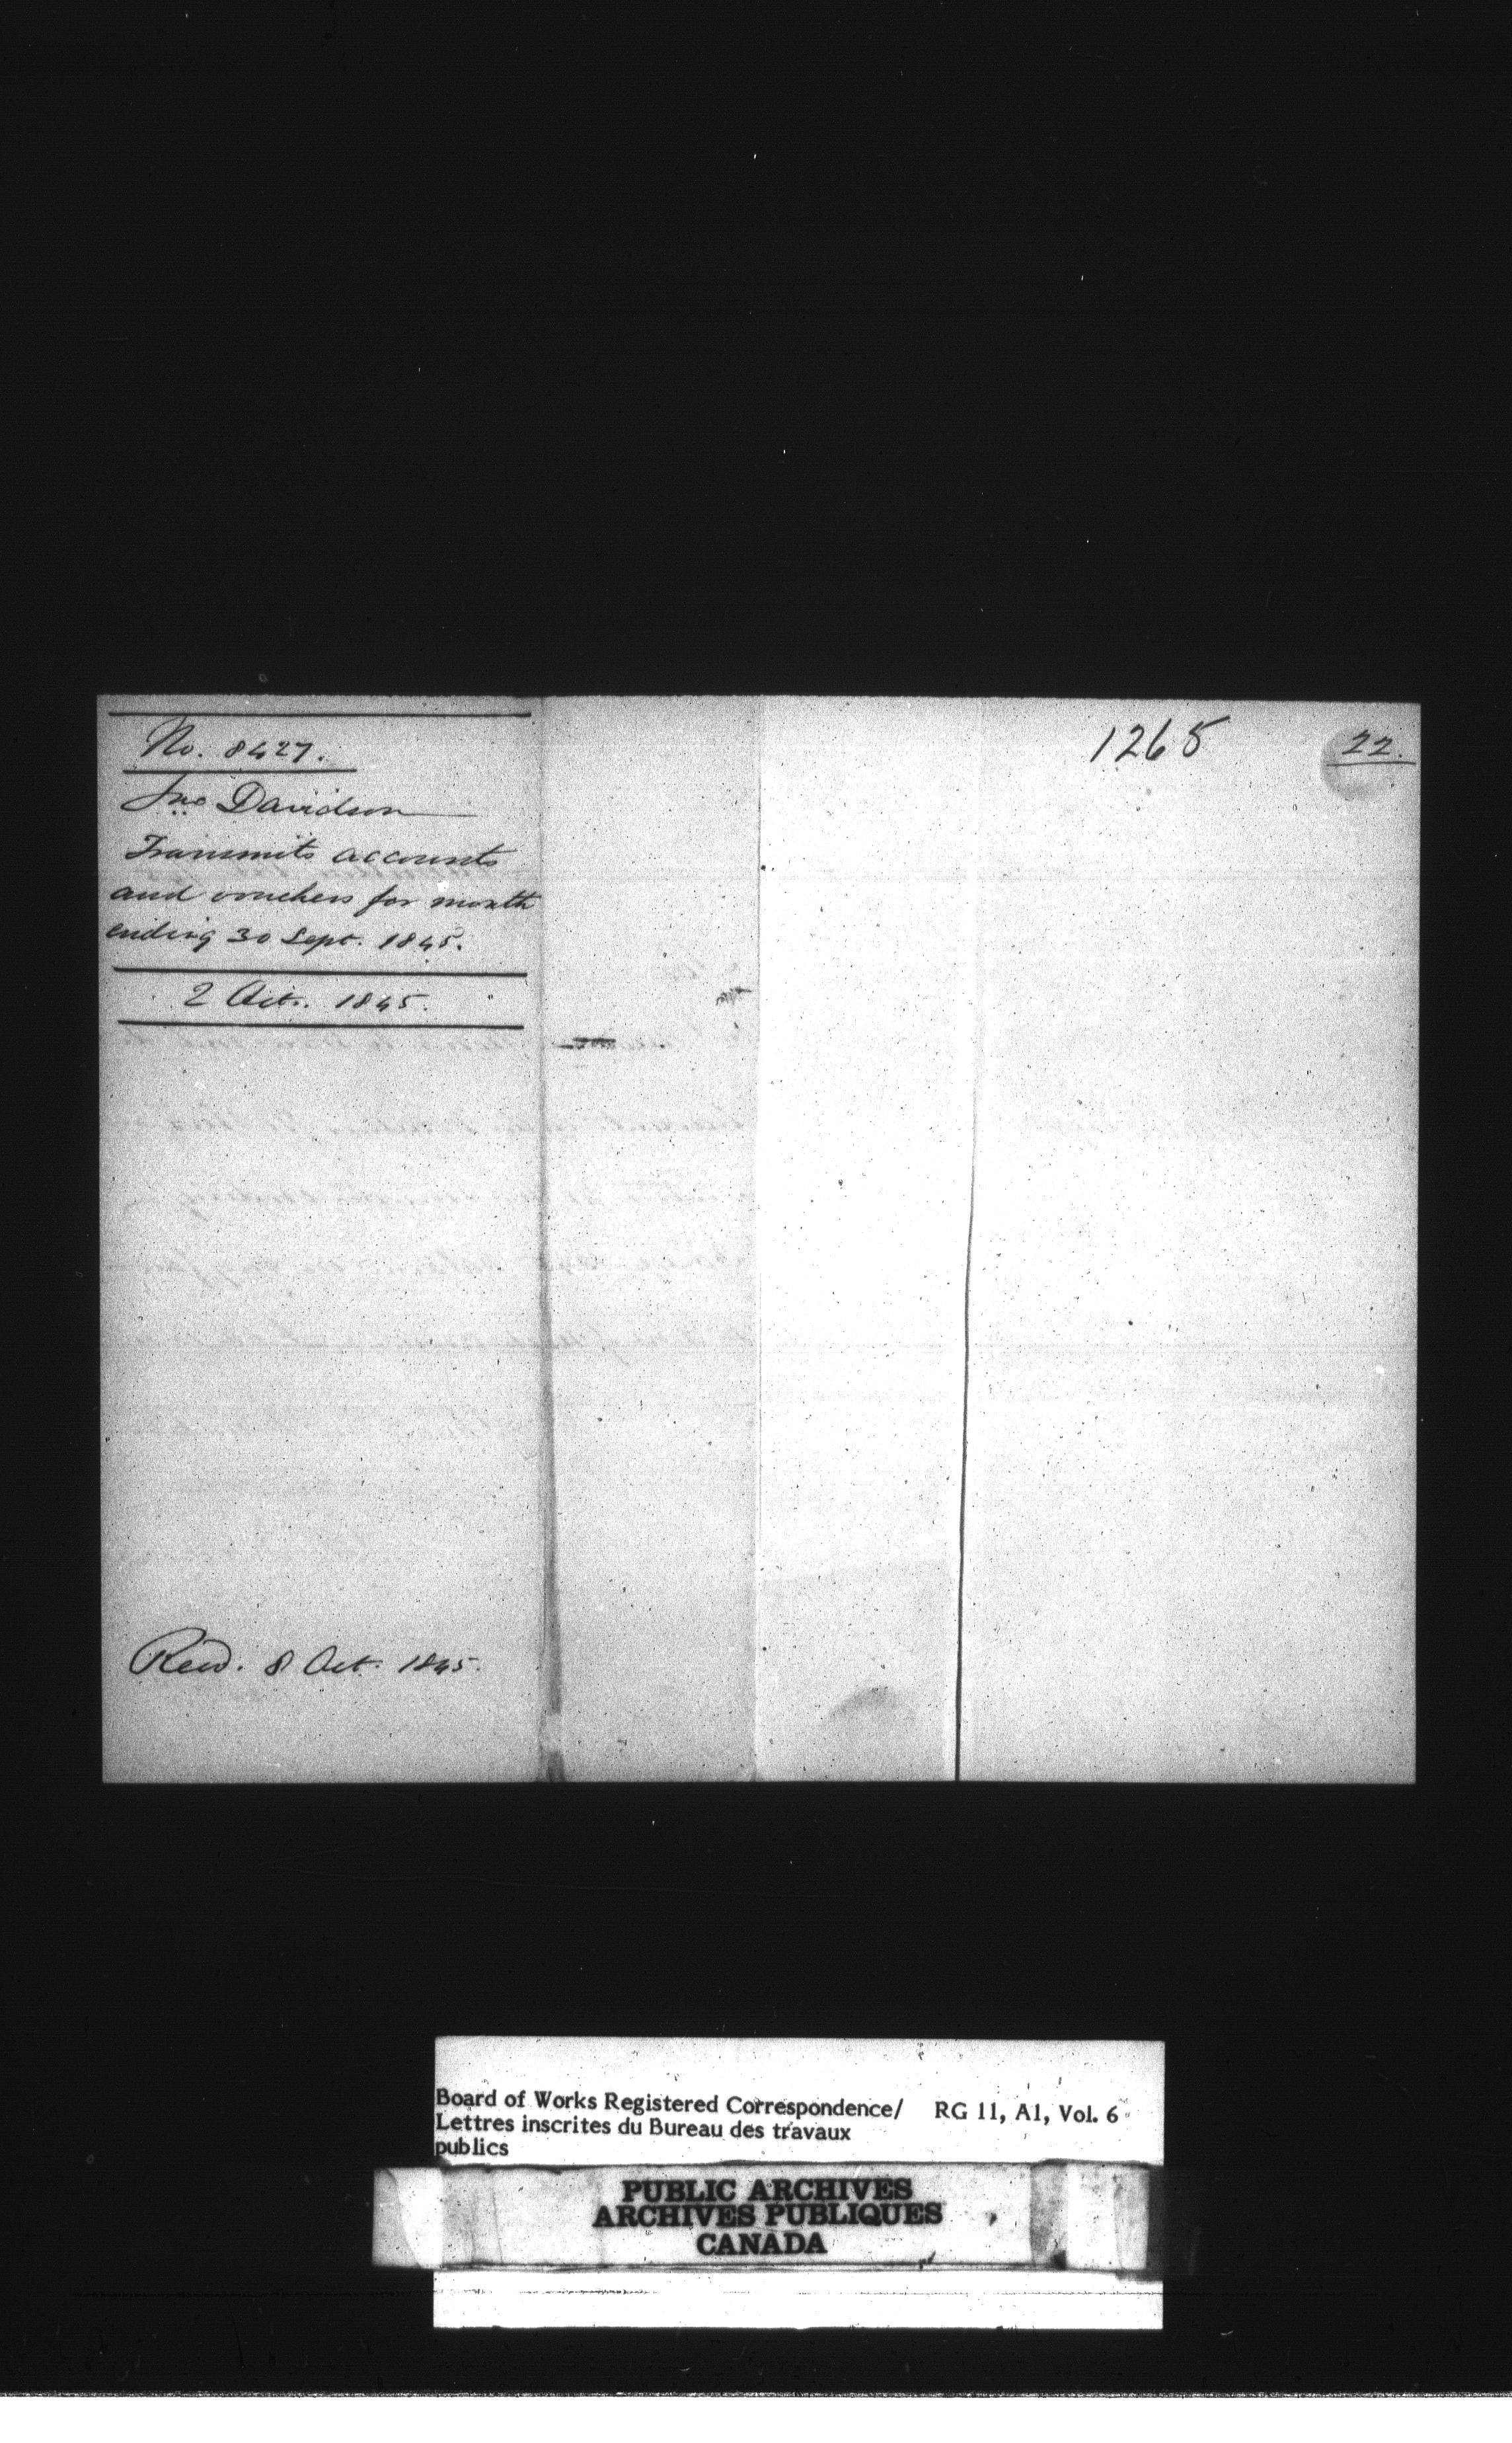 No. 8427.
Jno Davidson
Transmits accounts
and vouchers for month
ending 30 Sept. 1845.
2 Oct. 1845.
Recd. 8 Oct. 1845.
1265
22.
Board of Works Registered Correspondence/ RG 11, A1, Vol. 6
Lettres inscrites du Bureau des travaux
publics
PUBLIC ARCHIVES
ARCHIVES PUBLIQUES
CANADA